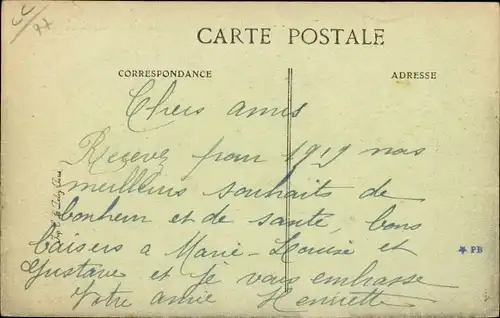 CARTE POSTALE
CORRESPONDANCE
ADRESSE
Chers amis
Recevez pour 1919 nos
meilleurs souhaits de
bonheur et de santé, bons
baisers a Marie-Louise et
Gustave et je vous embrasse
Votre amie Henriette
★ PB